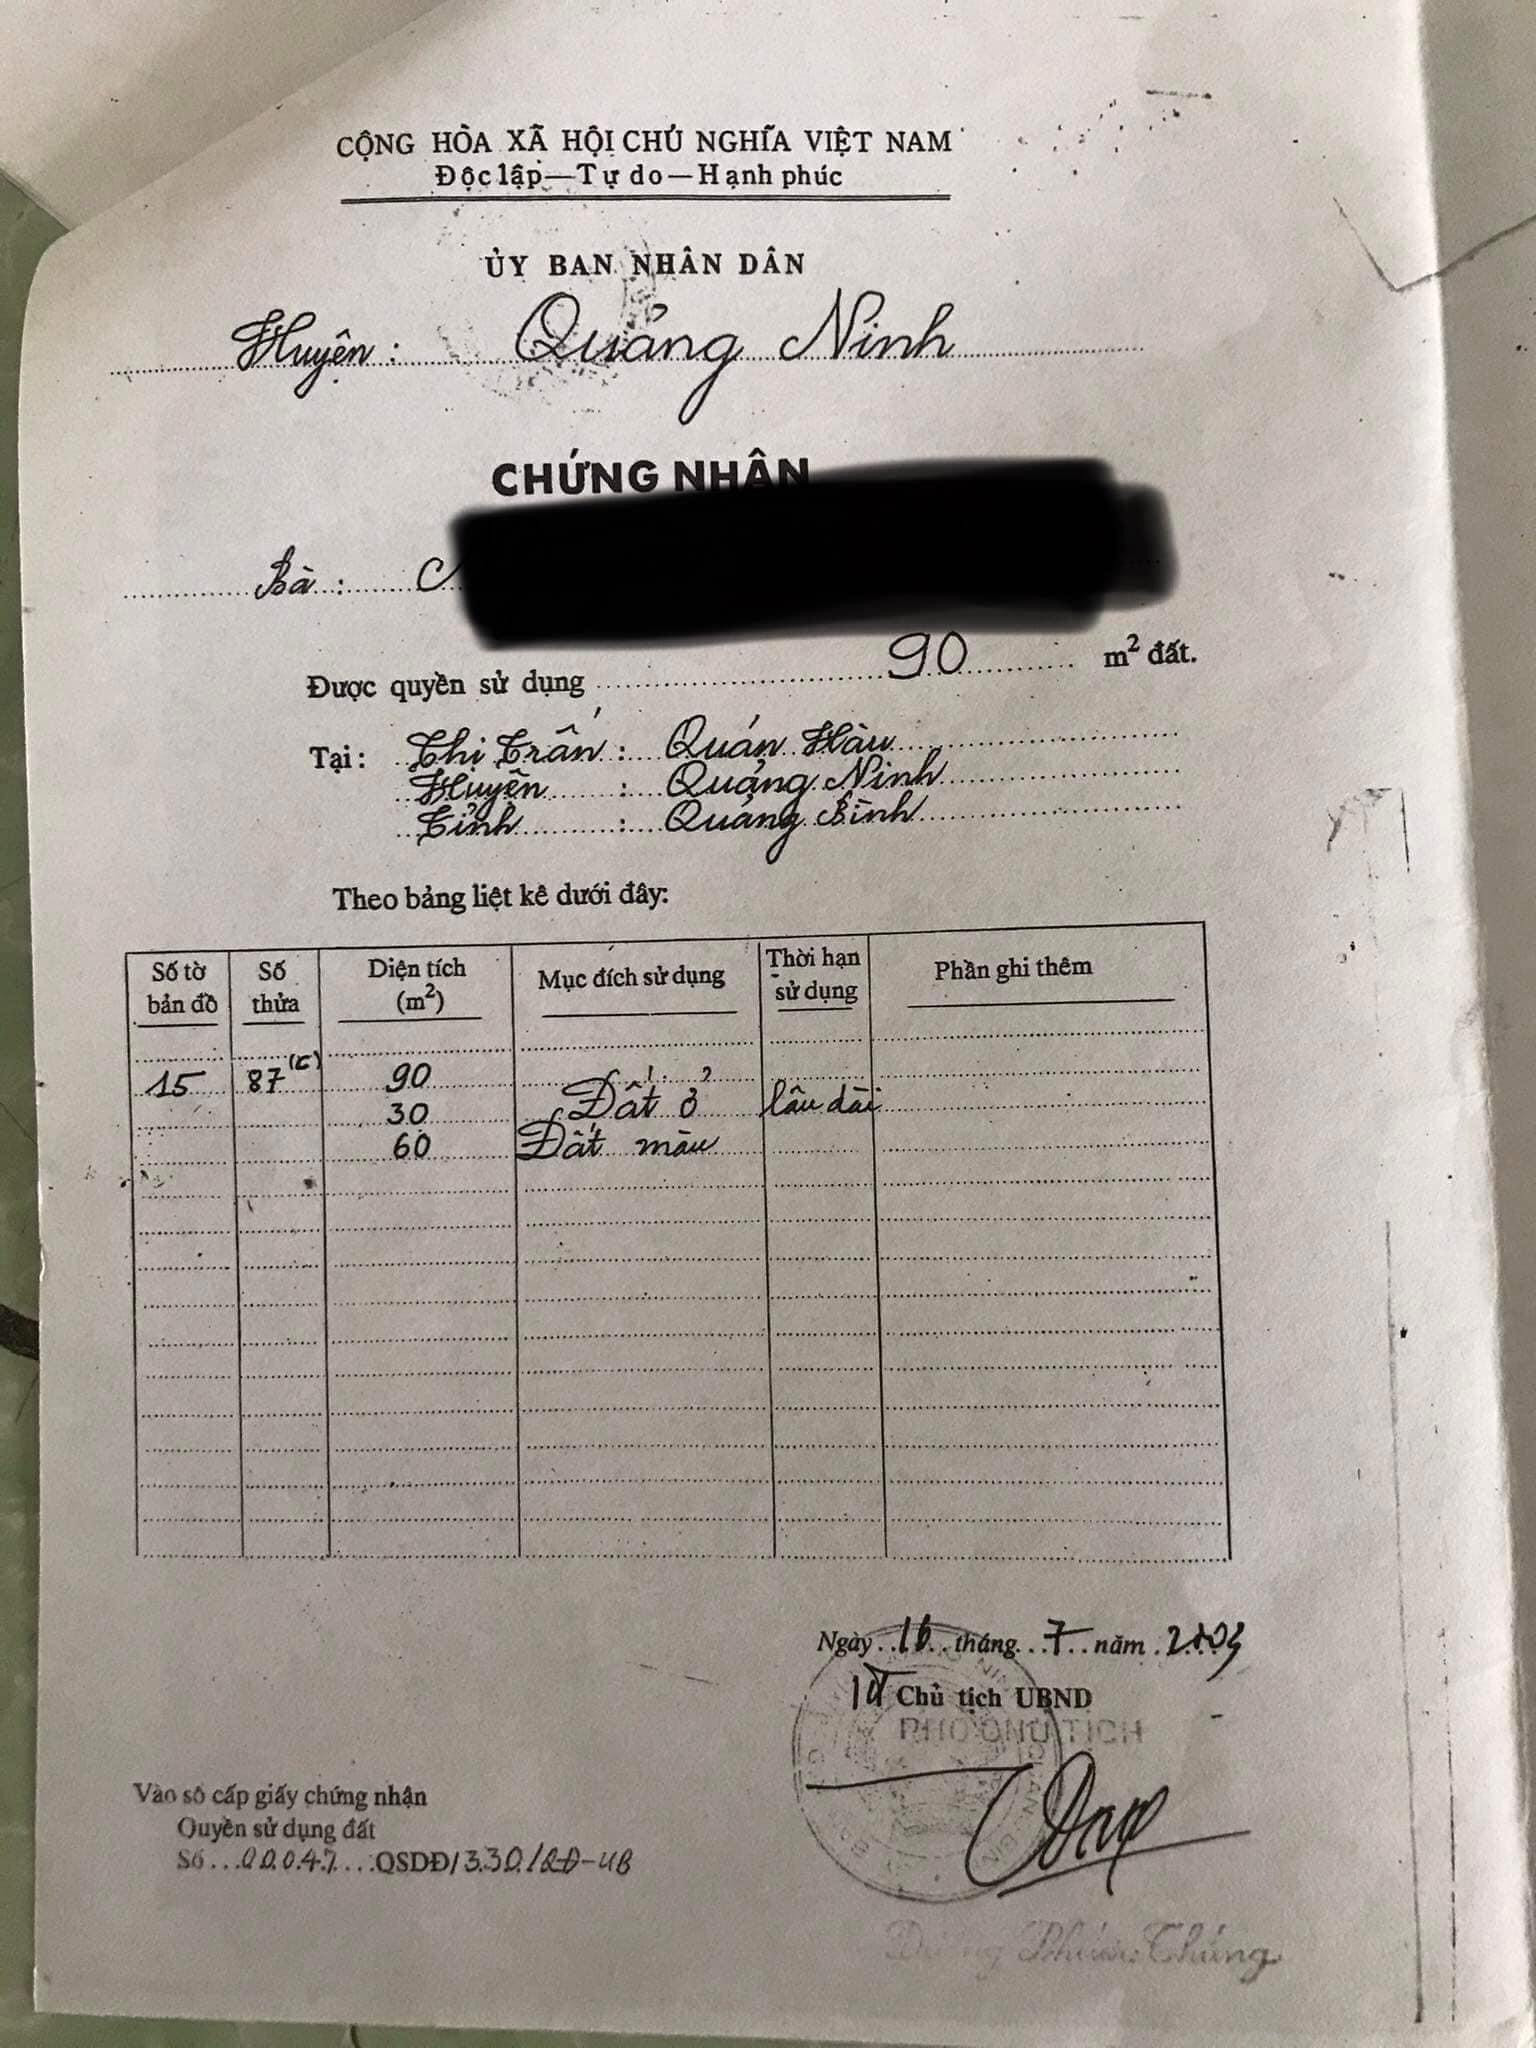 CỘNG HÒA XÃ HỘI CHỦ NGHĨA VIỆT NAM
Độc lập—Tự do—Hạnh phúc
ỦY BAN NHÂN DÂN
Huyện: Quảng Ninh
CHỨNG NHẬN
Bà:
Được quyền sử dụng 90 m² đất.
Tại: Thị Trấn: Quán Hàu
Huyện : Quảng Ninh
Tỉnh : Quảng Bình
Theo bảng liệt kê dưới đây:
Số tờ bản đồ Số thửa Diện tích (m²) Mục đích sử dụng Thời hạn sử dụng Phần ghi thêm
15 87(c) 90
30 Đất ở lâu dài
60 Đất màu
Ngày 16 tháng 7 năm 2003
Chủ tịch UBND
PHÓ CHỦ TỊCH
Vào sổ cấp giấy chứng nhận
Quyền sử dụng đất
Số 00047 QSDĐ/330/QĐ-UB